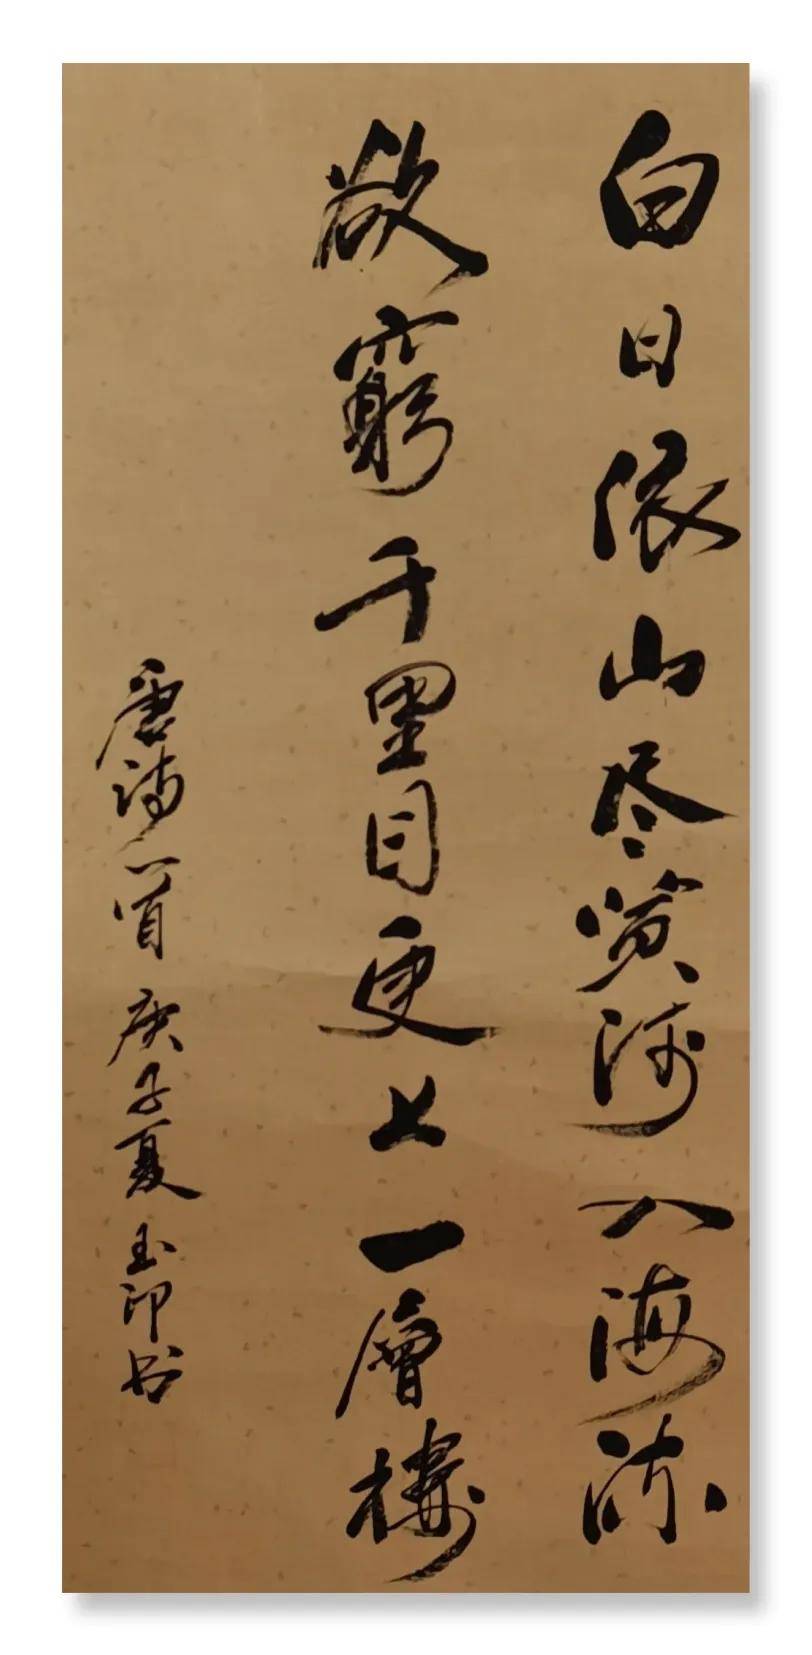 白日依山尽黄河入海流
欲窮千里目更上一層樓
唐诗一首 庚子夏玉印书